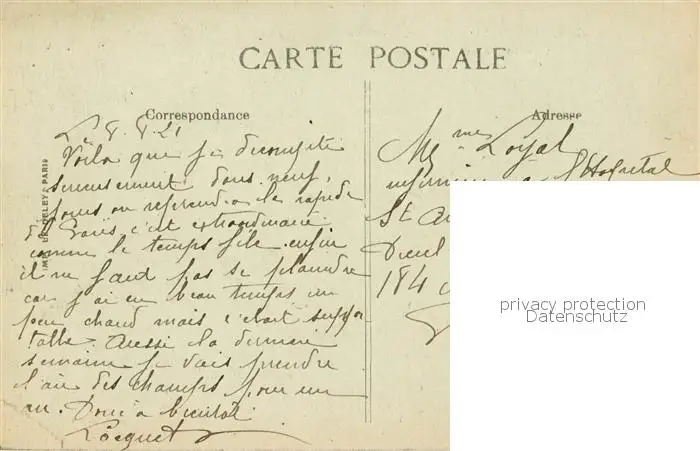 CARTE POSTALE
Correspondance
Le 8.8.21
Voila que je décompte
serieusement dans neuf
jours on reprendra le rapide
de Paris c'est extraordinaire
comme le temps file enfin
il ne faut pas se plaindre
car j'ai eu beau temps un
peu chaud mais c'était suppor
table. Aussi la dernière
semaine je vais prendre
l'air des champs pour un
an. Donc à bientôt
Locquet
IMP. DELEY, PARIS
Adresse
Mme Loyal
infirmière à l'Hopital
St
184
privacy protection
Datenschutz